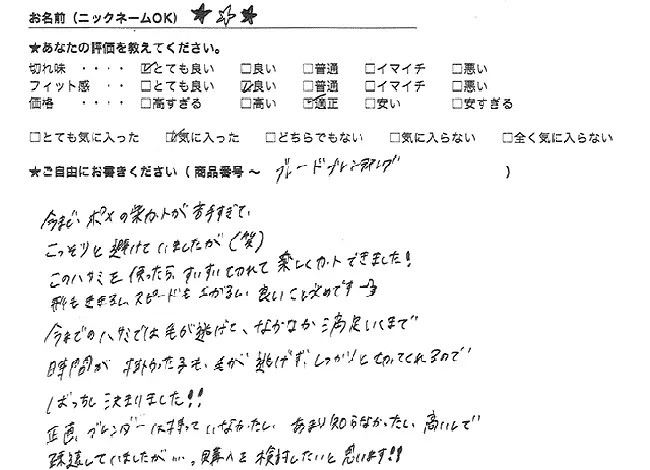 お名前（ニックネームOK） ★☆★
★あなたの評価を教えてください。
切れ味 ・・・・ ☑とても良い □良い □普通 □イマイチ □悪い
フィット感 ・・ □とても良い ☑良い □普通 □イマイチ □悪い
価格 ・・・・ □高すぎる □高い ☑適正 □安い □安すぎる
□とても気に入った ☑気に入った □どちらでもない □気に入らない □全く気に入らない
★ご自由にお書きください（商品番号～ ）
今まで、ポメの カットが苦手すぎて、
こっそりと避けていましたが（笑）
このハサミを使ったら、すいすい切れて楽しくカットできました！
形もきまるし、スピードも上がるし、良いこと づめです
今までのハサミでは毛が逃げて、なかなか満足いくまで
時間が かかった子も、毛が逃げず、しっかりと切ってくれるので
ばっちし決まりました！！
正直、ブレンダーは持っていなかったし、あまり知らなかったし、高いしで
していましたが…、購入を検討したいと思います！！